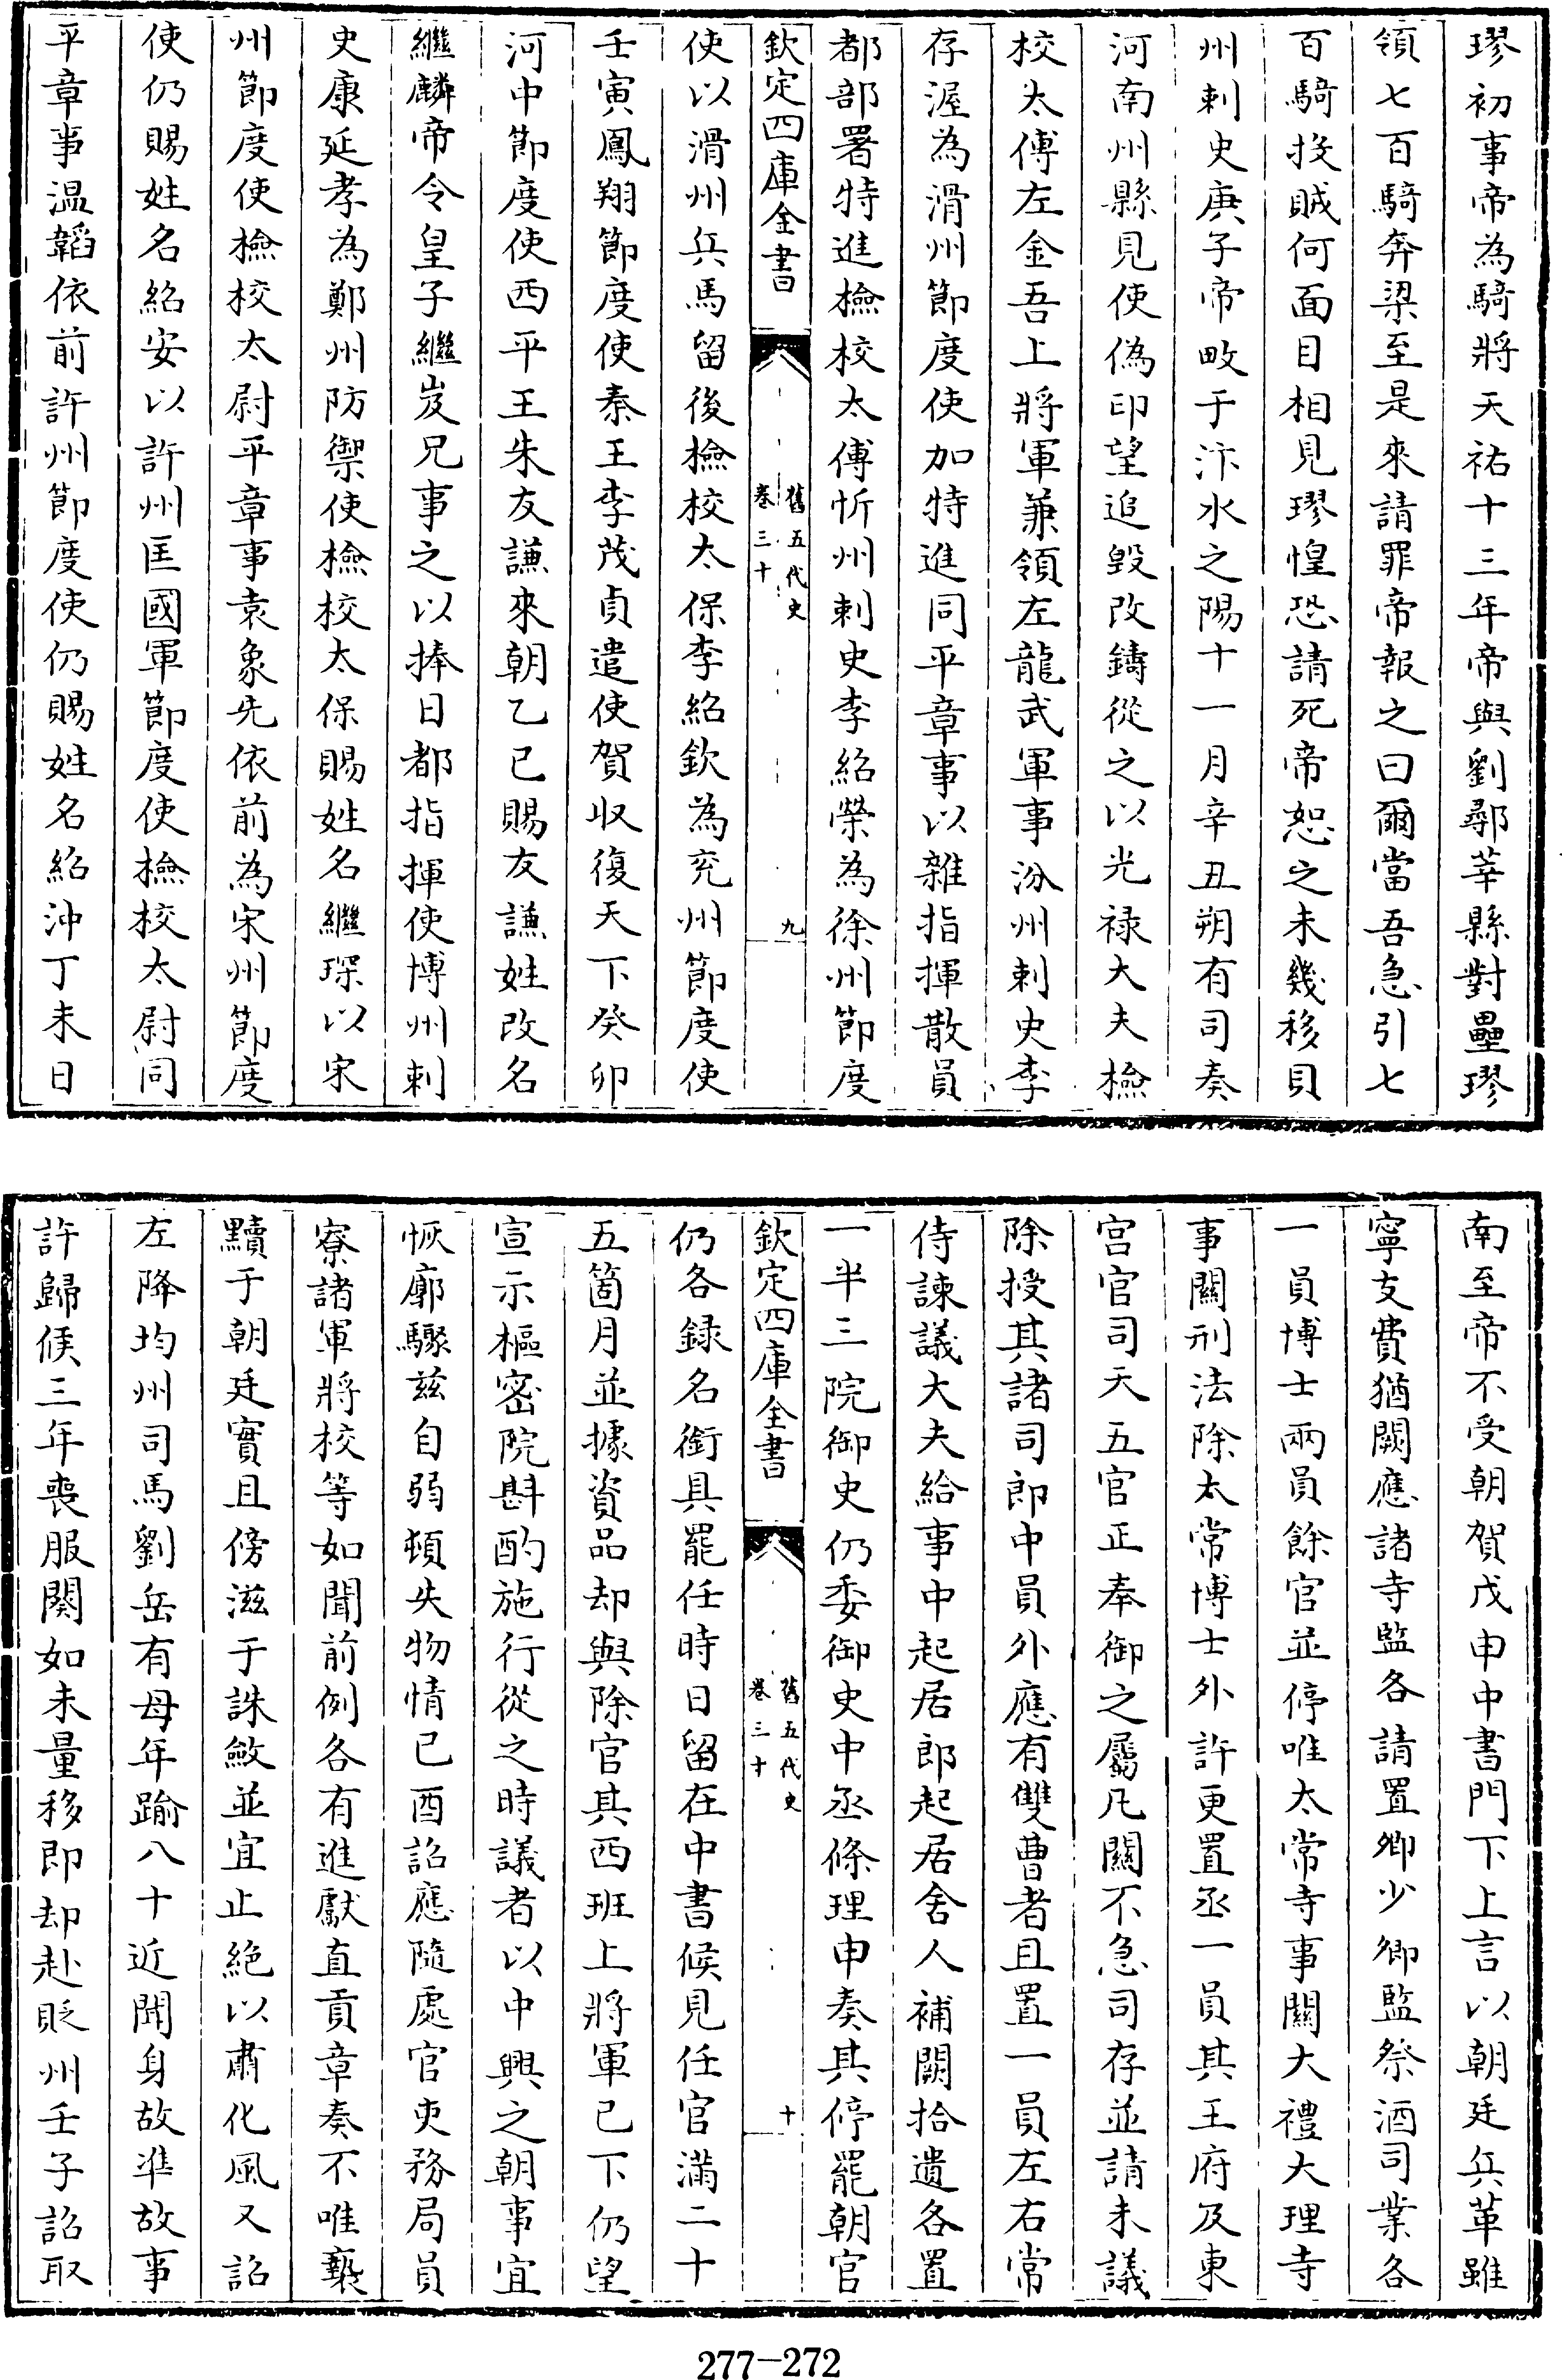 璆初事帝為騎將天祐十三年帝與劉鄩莘縣對壘璆
領七百騎奔梁至是來請罪帝報之曰爾當吾急引七
百騎投賊何面目相見璆惶恐請死帝恕之未幾移貝
州刺史庚子帝畋于汴水之陽十一月辛丑朔有司奏
河南州縣見使偽印望追毀改鑄從之以光禄大夫檢
校太傅左金吾上將軍兼領左龍武軍事汾州刺史李
存渥為滑州節度使加特進同平章事以雜指揮散員
都部署特進檢校太傅忻州刺史李紹榮為徐州節度
欽定四庫全書
舊五代史
卷三十
九
使以滑州兵馬留後檢校太保李紹欽為兖州節度使
壬寅鳳翔節度使秦王李茂貞遣使賀收復天下癸卯
河中節度使西平王朱友謙來朝乙巳賜友謙姓改名
繼麟帝令皇子繼岌兄事之以捧日都指揮使博州刺
史康延孝為鄭州防禦使檢校太保賜姓名繼琛以宋
州節度使檢校太尉平章事袁象先依前為宋州節度
使仍賜姓名紹安以許州匡國軍節度使檢校太尉同
平章事温韜依前許州節度使仍賜姓名紹沖丁未日
南至帝不受朝賀戊申中書門下上言以朝廷兵革雖
寧支費猶闕應諸寺監各請置卿少卿監祭酒司業各
一員博士兩員餘官並停唯太常寺事關大禮大理寺
事關刑法除太常博士外許更置丞一員其王府及東
宫官司天五官正奉御之屬凡關不急司存並請未議
除授其諸司郎中員外應有雙曹者且置一員左右常
侍諫議大夫給事中起居郎起居舍人補闕拾遺各置
一半三院御史仍委御史中丞條理申奏其停罷朝官
欽定四庫全書
舊五代史
卷三十
十
仍各録名銜具罷任時日留在中書候見任官滿二十
五箇月並據資品却與除官其西班上將軍已下仍望
宣示樞密院斟酌施行從之時議者以中興之朝事宜
恢廓驟兹自弱頓失物情已酉詔應隨處官吏務局員
寮諸軍將校等如聞前例各有進獻直貢章奏不唯褻
黷于朝廷實且傍滋于誅斂並宜止絶以肅化風又詔
左降均州司馬劉岳有母年踰八十近聞身故準故事
許歸候三年喪服闋如未量移即却赴貶州壬子詔取
277-272